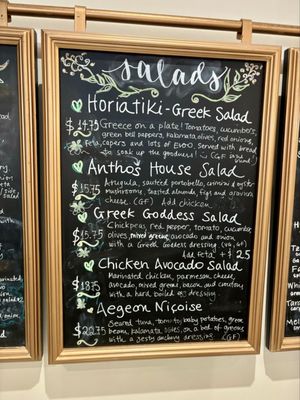 Salads
Horiatiki-Greek Salad
$14.75 Greece on a plate! Tomatoes, cucumbers,
green bell peppers, kalamata olives, red onions,
Feta, capers and lots of EVOO. Served with bread
to soak up the goodness! (GF
Anthos House Salad
$15.75 Arugula, sauteed portobello, crimini & oyster
mushrooms, toasted almonds, figs and
cheese (GF) Add chicken
Greek Goddess Salad
$15.75 Chickpeas, red pepper, tomato, cucumber
olives, mixed greens, avocado and onion
with a Greek Goddess dressing (VG, GF)
Add Feta + $2.5
Chicken Avocado Salad
$18.75 Marinated chicken, parmesan cheese,
avocado, mixed greens, bacon and
with a hard boiled egg dressing
Aegeon Niçoise
$22.75 Seared tuna, tomato, baby potatoes, green
beans, kalamata olives, on a bed of greens
with a zesty anchovy dressing (GF)